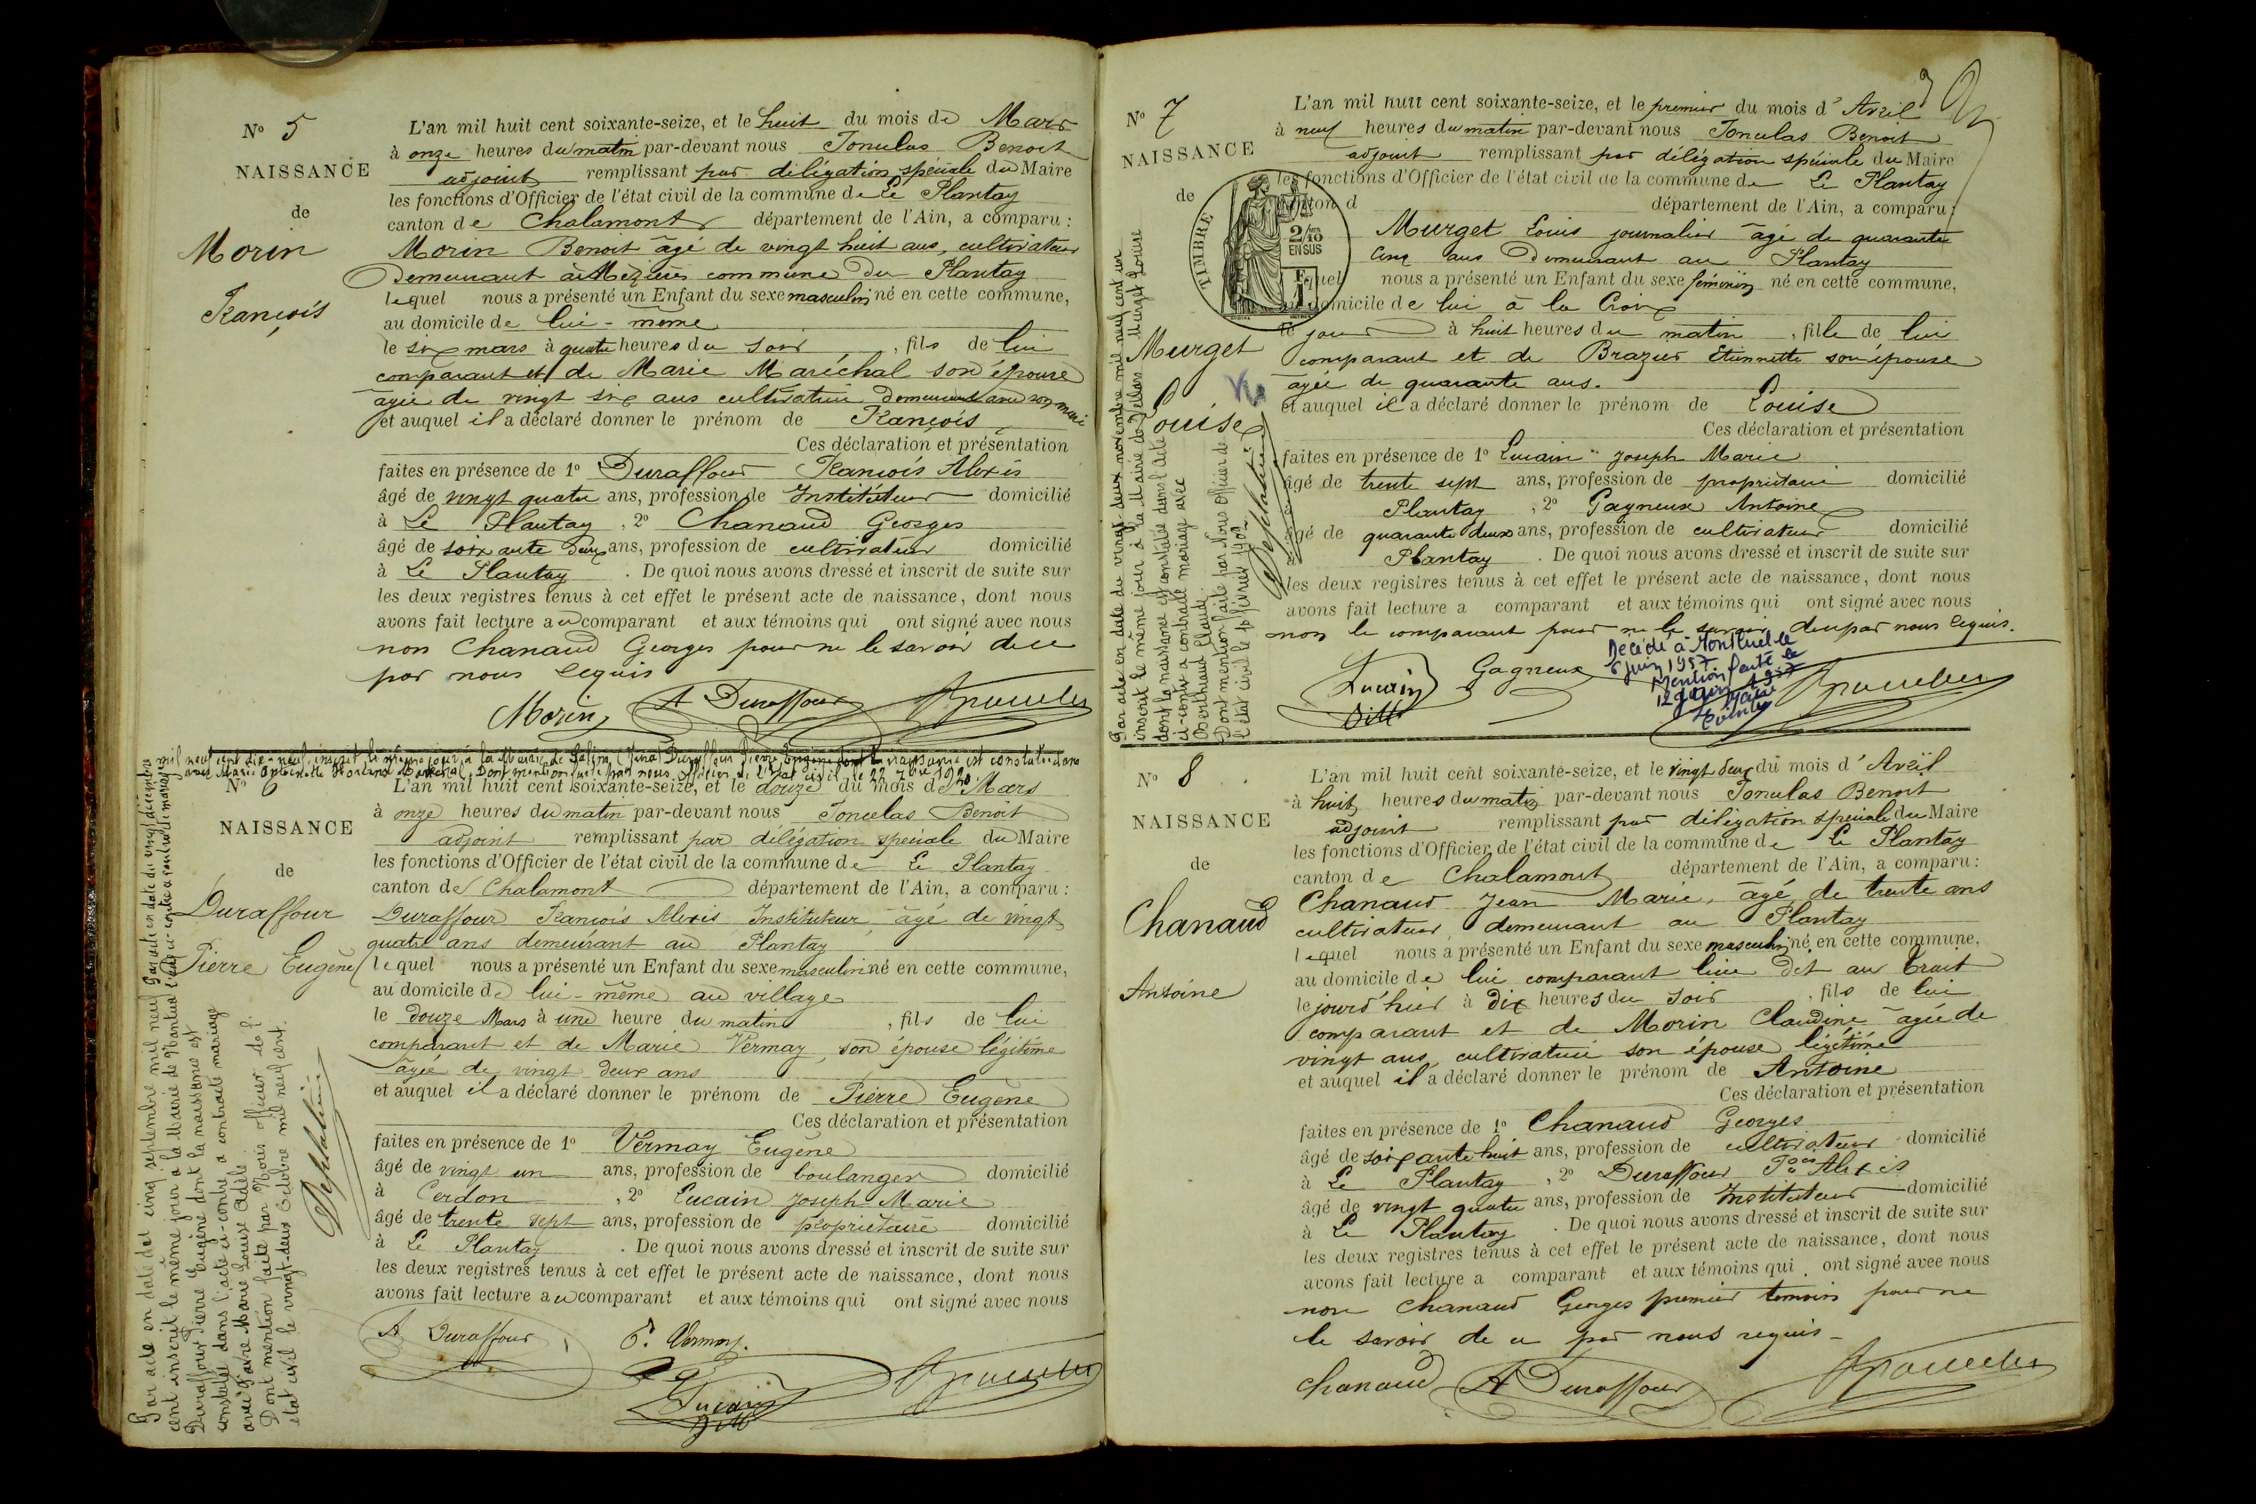 N° 5
NAISSANCE
de
Morin
François
L'an mil huit cent soixante-seize, et le huit du mois de Mars
à onze heures du matin par-devant nous Benoit
adjoint remplissant par délégation spéciale du Maire
les fonctions d'Officier de l'état civil de la commune de Le Plantay
canton de Chalamont département de l'Ain, a comparu :
Morin Benoit âgé de vingt huit ans, cultivateur
Demeurant à Mézières commune du Plantay
lequel nous a présenté un Enfant du sexe masculin né en cette commune,
au domicile de lui-même
le six mars à quatre heures du soir, fils de lui
comparant et de Marie Maréchal son épouse
âgée de vingt six ans cultivatrice demeurant avec son mari
et auquel il a déclaré donner le prénom de François
Ces déclaration et présentation
faites en présence de 1° Duraffour François Alexis
âgé de vingt quatre ans, profession de Instituteur domicilié
à Le Plantay, 2° Chanaud Georges
âgé de soixante deux ans, profession de cultivateur domicilié
à Le Plantay. De quoi nous avons dressé et inscrit de suite sur
les deux registres tenus à cet effet le présent acte de naissance, dont nous
avons fait lecture au comparant et aux témoins qui ont signé avec nous
non Chanaud Georges pour ne le savoir de ce
par nous requis
Morin A Duraffour
mil neuf cent dix-neuf, inscrit le même jour à la Mairie de Duraffour Pierre Eugène dont la naissance est constatée dans
avec Marie Antoinette Dont mention faite par nous, officier de l'état civil, le 22 1920
Par acte en date du vingt décembre
l'acte ci-contre a contracté mariage
N° 6
NAISSANCE
de
Duraffour
Pierre Eugène
Par acte en date du cinq septembre mil neuf
cent inscrit le même jour à la Mairie de Nantua
Duraffour Pierre Eugène dont la naissance est
constatée dans l'acte ci-contre a contracté mariage
avec Favre Marie Louise Adèle.
Dont mention faite par Nous officier de l'
état civil le vingt-deux Octobre mil neuf cent.
L'an mil huit cent soixante-seize, et le douze du mois de Mars
à onze heures du matin par-devant nous Benoit
adjoint remplissant par délégation spéciale du Maire
les fonctions d'Officier de l'état civil de la commune de Le Plantay
canton de Chalamont département de l'Ain, a comparu :
Duraffour François Alexis Instituteur, âgé de vingt
quatre ans demeurant au Plantay
lequel nous a présenté un Enfant du sexe masculin né en cette commune,
au domicile de lui-même au village
le douze Mars à une heure du matin, fils de lui
comparant et de Marie Vermay, son épouse légitime
âgée de vingt deux ans
et auquel il a déclaré donner le prénom de Pierre Eugène
Ces déclaration et présentation
faites en présence de 1° Vermay Eugène
âgé de vingt un ans, profession de boulanger domicilié
à Cerdon, 2° Lucain Joseph Marie
âgé de trente sept ans, profession de propriétaire domicilié
à Le Plantay. De quoi nous avons dressé et inscrit de suite sur
les deux registres tenus à cet effet le présent acte de naissance, dont nous
avons fait lecture au comparant et aux témoins qui ont signé avec nous
A Duraffour E. Vermay.
Lucain
N° 7
NAISSANCE
de
Murget
Louise
TIMBRE
2/10
EN SUS
Par acte en date du vingt deux novembre mil neuf cent un
inscrit le même jour à la Mairie de Murget Louise
dont la naissance est constatée dans l'acte
ci-contre a contracté mariage avec
Berthaud Claude.
Dont mention faite par Nous Officier de
l'état civil le 10 février 1902
L'an mil huit cent soixante-seize, et le premier du mois d'Avril
à neuf heures du matin par-devant nous Benoit
adjoint remplissant par délégation spéciale du Maire
les fonctions d'Officier de l'état civil de la commune de Le Plantay
canton d département de l'Ain, a comparu :
Murget Louis journalier âgé de quarante
cinq ans Demeurant au Plantay
lequel nous a présenté un Enfant du sexe féminin né en cette commune,
au domicile de lui à la Croix
le jour à huit heures du matin, fille de lui
comparant et de Brazier Etiennette son épouse
âgée de quarante ans.
et auquel il a déclaré donner le prénom de Louise
Ces déclaration et présentation
faites en présence de 1° Lucain Joseph Marie
âgé de trente sept ans, profession de propriétaire domicilié
Plantay, 2° Gagneux Antoine
âgé de quarante deux ans, profession de cultivateur domicilié
Plantay. De quoi nous avons dressé et inscrit de suite sur
les deux registres tenus à cet effet le présent acte de naissance, dont nous
avons fait lecture a comparant et aux témoins qui ont signé avec nous
non le comparant pour ne le savoir de ce par nous requis.
Lucain Gagneux
Décédé à Montluel le
6 juin 1957
Mention faite le
12 juin 1957
Le Maire
N° 8
NAISSANCE
de
Chanaud
Antoine
L'an mil huit cent soixante-seize, et le vingt deux du mois d'Avril
à huit heures du matin par-devant nous Benoit
adjoint remplissant par délégation spéciale du Maire
les fonctions d'Officier de l'état civil de la commune de Le Plantay
canton de Chalamont département de l'Ain, a comparu :
Chanaud Jean Marie, âgé de trente ans
cultivateur demeurant au Plantay
lequel nous a présenté un Enfant du sexe masculin né en cette commune,
au domicile de lui comparant lieu dit au
le jourd'hier à dix heures du soir, fils de lui
comparant et de Morin Claudine âgée de
vingt ans, cultivatrice son épouse légitime
et auquel il a déclaré donner le prénom de Antoine
Ces déclaration et présentation
faites en présence de 1° Chanaud Georges
âgé de soixante huit ans, profession de cultivateur domicilié
à Le Plantay, 2° Duraffour Fois Alexis
âgé de vingt quatre ans, profession de Instituteur domicilié
à Le Plantay. De quoi nous avons dressé et inscrit de suite sur
les deux registres tenus à cet effet le présent acte de naissance, dont nous
avons fait lecture a comparant et aux témoins qui ont signé avec nous
non Chanaud Georges premier témoin pour ne
le savoir de ce par nous requis-
Chanaud A Duraffour